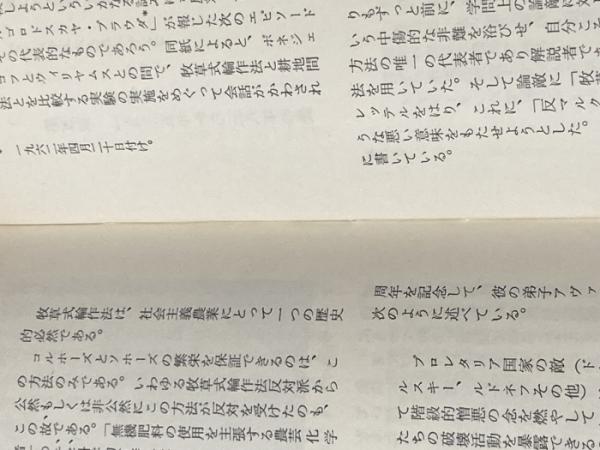 ゴロドスカヤ・プラウダ』が報じた次のエピソード
その代表的なものであろう。同紙によると、ポネジェ
コフとウィリヤムスとの間で、牧草式輪作法と耕地間
法とを比較する実験の実施をめぐって会話がかわされ
一九六二年四月二十日付け。
りもずっと前に、学問上の論敵に対
いう中傷的な非難を浴びせ、自分こそ
方法の唯一の代表者であり解説者であ
法を用いていた。そして論敵に「牧草
レッテルをはり、これに、「反マルク
うな悪い意味をもたせようとした。
に書いている。
牧草式輪作法は、社会主義農業にとって一つの歴史
的必然である。
コルホーズとソホーズの繁栄を保証できるのは、こ
の方法のみである。いわゆる牧草式輪作法反対派から
公然もしくは非公然にこの方法が反対を受けたのも、
この故である。「無機肥料の使用を主張する農芸化学
周年を記念して、彼の弟子アヴァ
次のように述べている。
プロレタリア国家の敵（ド
ルスキー、ルドネフその他）
て階級的憎悪の念を燃やして
たちの破壊活動を暴露できる